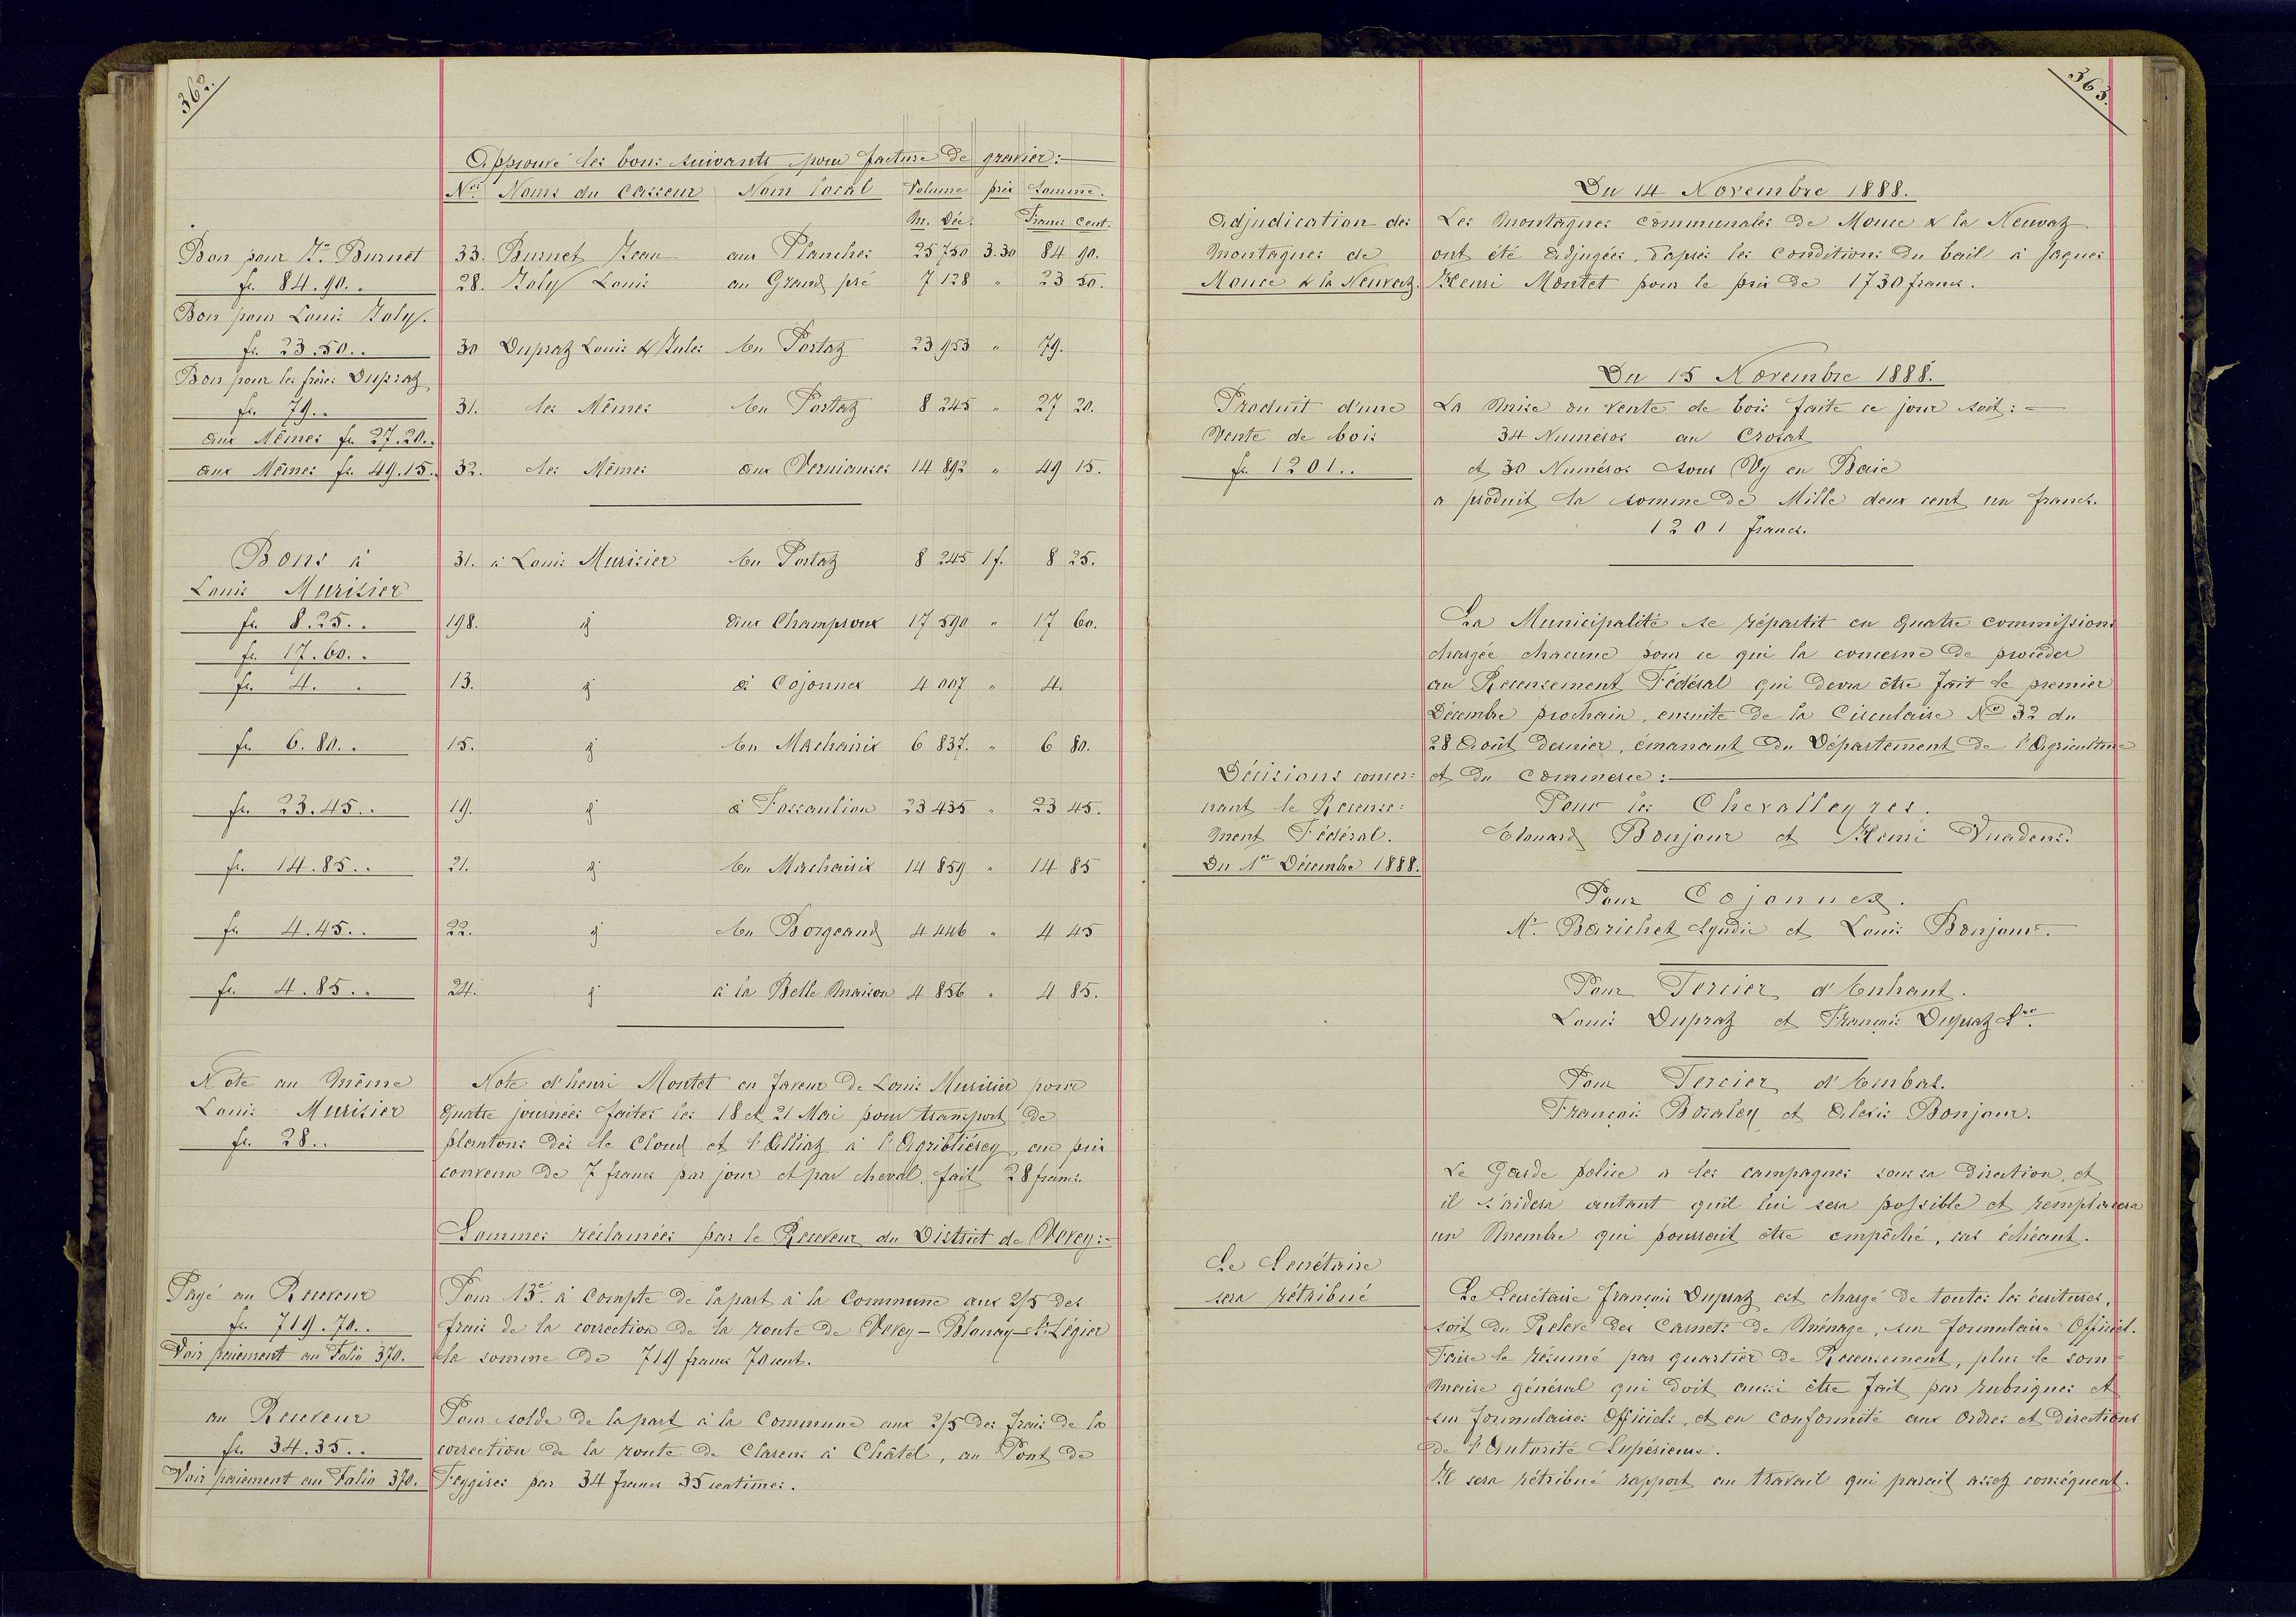 362.
Approuvé les bons suivants pour facture de gravier :
Nos Noms du Casseur Nom local Volume prix Somme.
M. Déc. Francs Cent.
Bon pour Jn Burnet 33. Burnet Jean aux Planches 25 750 3.30 84 90.
fr. 84.90.. 28. Joly Louis au Grand pré 7 128 " 23 50.
Bon pour Louis Joly.
fr. 23.50.. 30 Dupraz Louis & Jules En Portaz 23 953 " 79.
Bon pour les frères Dupraz
fr. 79.. 31. les Mêmes En Portaz 8 245 " 27 20.
aux Mêmes fr. 27.20..
aux Mêmes fr. 49.15. 32. les Mêmes aux Vernianses 14 892 " 49 15.
Bons à 31. à Louis Murisier En Portaz 8 245 1 f. 8 25.
Louis Murisier
fr. 8.25.. 198. id aux Champroux 17 590 " 17 60.
fr. 17.60..
fr. 4. . 13. id à Cojonnex 4 007 " 4.
fr. 6.80.. 15. id En Machaisix 6 837. " 6 80.
fr. 23.45.. 19. id à Fossaulion 23 435 " 23 45.
fr. 14.85.. 21. id En Machaisix 14 859 " 14 85
fr. 4.45.. 22. id En Borgeaud 4 446 " 4 45
fr. 4.85.. 24. id à la Belle Maison 4 856 " 4 85.
Note au Même Note d'henri Montet en faveur de Louis Murisier pour
Louis Murisier quatre journées faites les 18 et 21 Mai pour transport de
fr. 28.. plantons dès le Cloud et l'Alliaz à l'Agriblierey, au prix
convenu de 7 francs par jour et par cheval, fait 28 francs.
Sommes réclamées par le Receveur du District de Vevey :
Payé au Receveur Pour 13e à Compte de la part à la Commune aux 2/5 des
fr. 719.70.. frais de la correction de la route de Vevey - Blonay - St-Légier
Voir paiement au Folio 370. la somme de 719 francs 70 cent.
au Receveur Pour solde de la part à la Commune aux 2/5 des frais de la
fr. 34.35.. correction de la route de Clarens à Châtel, au Pont de
Voir paiement au Folio 370. Feygires par 34 francs 35 centimes.
363.
Du 14 Novembre 1888.
Adjudication des Les Montagnes Communales de Mouce & la Neuvaz
Montagnes de ont été Adjugées, d'après les Conditions du bail à Jaques
Mouce & la Neuvaz. Henri Montet pour le prix de 1730 francs.
Du 15 Novembre 1888.
Produit d'une La Mise ou vente de bois faite ce jour soit :
Vente de bois 34 Numéros au Crosat
fr. 1201.. et 30 Numéros sous Vy en Baie
a produit la somme de Mille deux cent un francs.
1201 francs.
La Municipalité se répartit en quatre commissions
chargée chacune pour ce qui la concerne de procéder
au Recensement Fédéral qui devra être fait le premier
Décembre prochain, ensuite de la Circulaire No 32 du
28 Août dernier, émanant du Département de l'Agriculture
Décisions concer= et du Commerce :
nant le Recense= Pour les Chevalleyres.
ment Fédéral. Edouard Bonjour et Henri Vuadens.
Du 1er Décembre 1888.
Pour Cojonnex.
Mr Barichet Syndic et Louis Bonjour.
Pour Tercier d'Enhaut.
Louis Dupraz et François Dupraz Sre.
Pour Tercier d'Embas.
François Boraley et Alexis Bonjour.
Le Garde police a les campagnes sous sa direction, et
il s'aidera autant qu'il lui sera possible et remplacera
un Membre qui pourrait être empêché, cas échéant.
Le Secrétaire
sera rétribué Le Secrétaire François Dupraz est chargé de toutes les écritures,
soit du Relevé des Carnets de Ménage, sur formulaire Officiel.
Faire le résumé par quartier de Recensement, plus le som=
maire général qui doit aussi être fait par rubriques et
sur formulaires Officiels, et en conformité aux Ordres et directions
de l'Autorité Supérieure.
Il sera rétribué rapport au travail qui paraît assez conséquent.